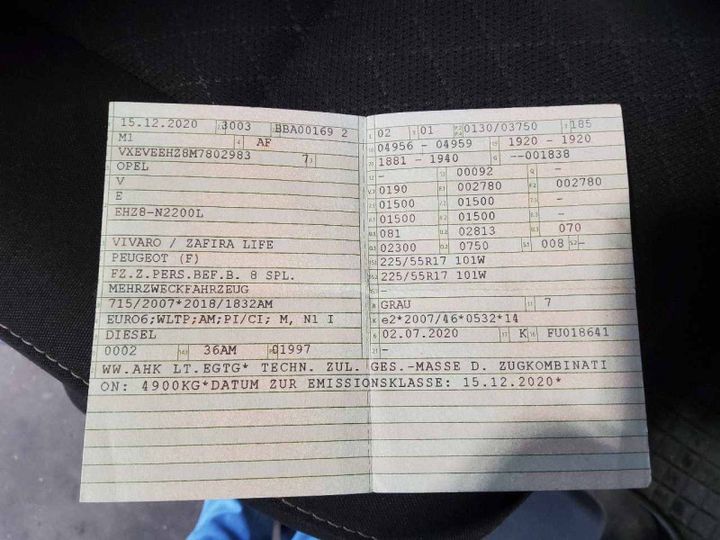 15.12.2020 3003 BBA00169 2
M1 AF
VXEVEEHZ8M7802983 7
OPEL
V
E
EHZ8-N2200L
VIVARO / ZAFIRA LIFE
PEUGEOT (F)
FZ.Z.PERS.BEF.B. 8 SPL.
MEHRZWECKFAHRZEUG
715/2007*2018/1832AM
EURO6;WLTP;AM;PI/CI; M, N1 I
DIESEL
0002 36AM 01997
02 01 0130/03750 185
04956 - 04959 1920 - 1920
1881 - 1940 --001838
- 00092 -
0190 002780 002780
01500 01500 -
01500 01500 -
081 02813 070
02300 0750 008 -
225/55R17 101W
225/55R17 101W
-
GRAU 7
e2*2007/46*0532*14
02.07.2020 K FU018641
-
WW.AHK LT.EGTG* TECHN. ZUL. GES.-MASSE D. ZUGKOMBINATI
ON: 4900KG*DATUM ZUR EMISSIONSKLASSE: 15.12.2020*